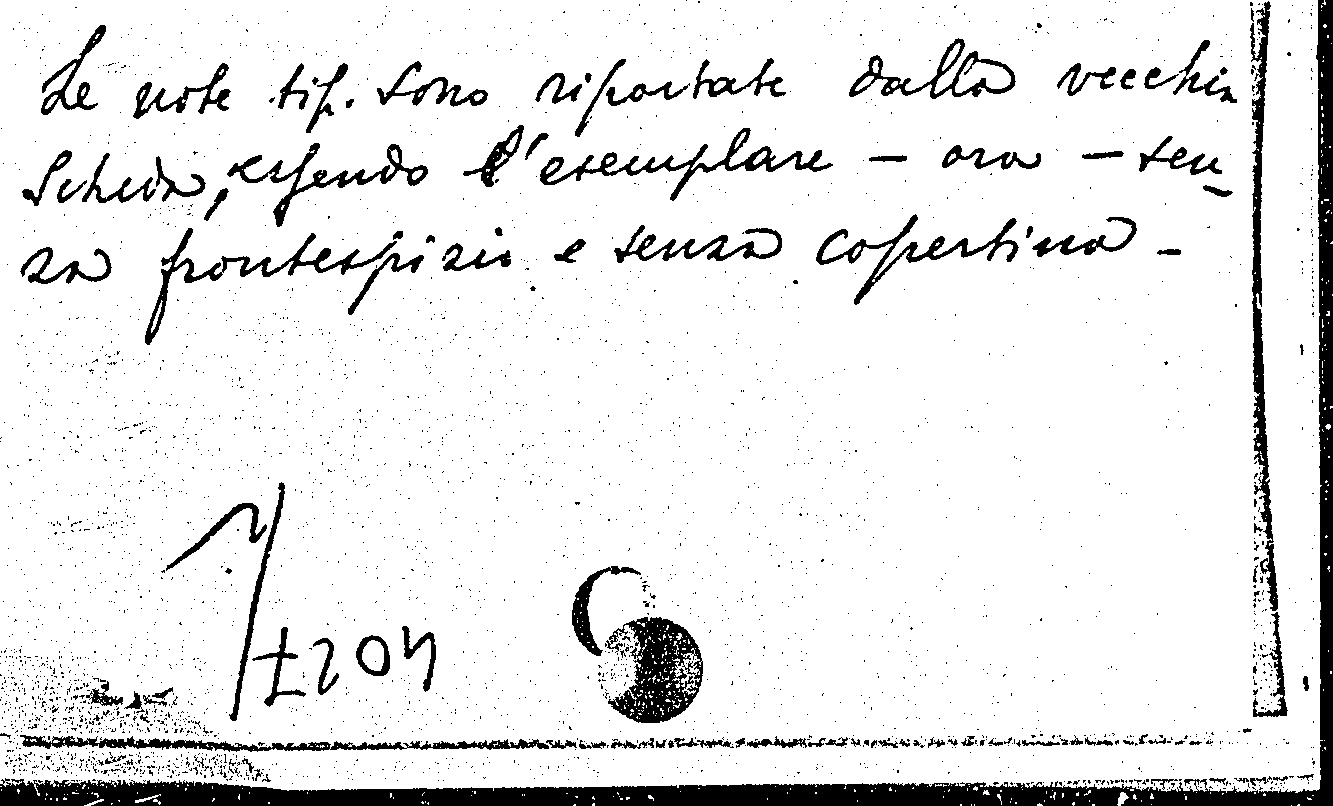 Le note tip. sono riportate dalla vecchia
scheda, essendo l'esemplare – ora – sen-
za frontespizio e senza copertina –